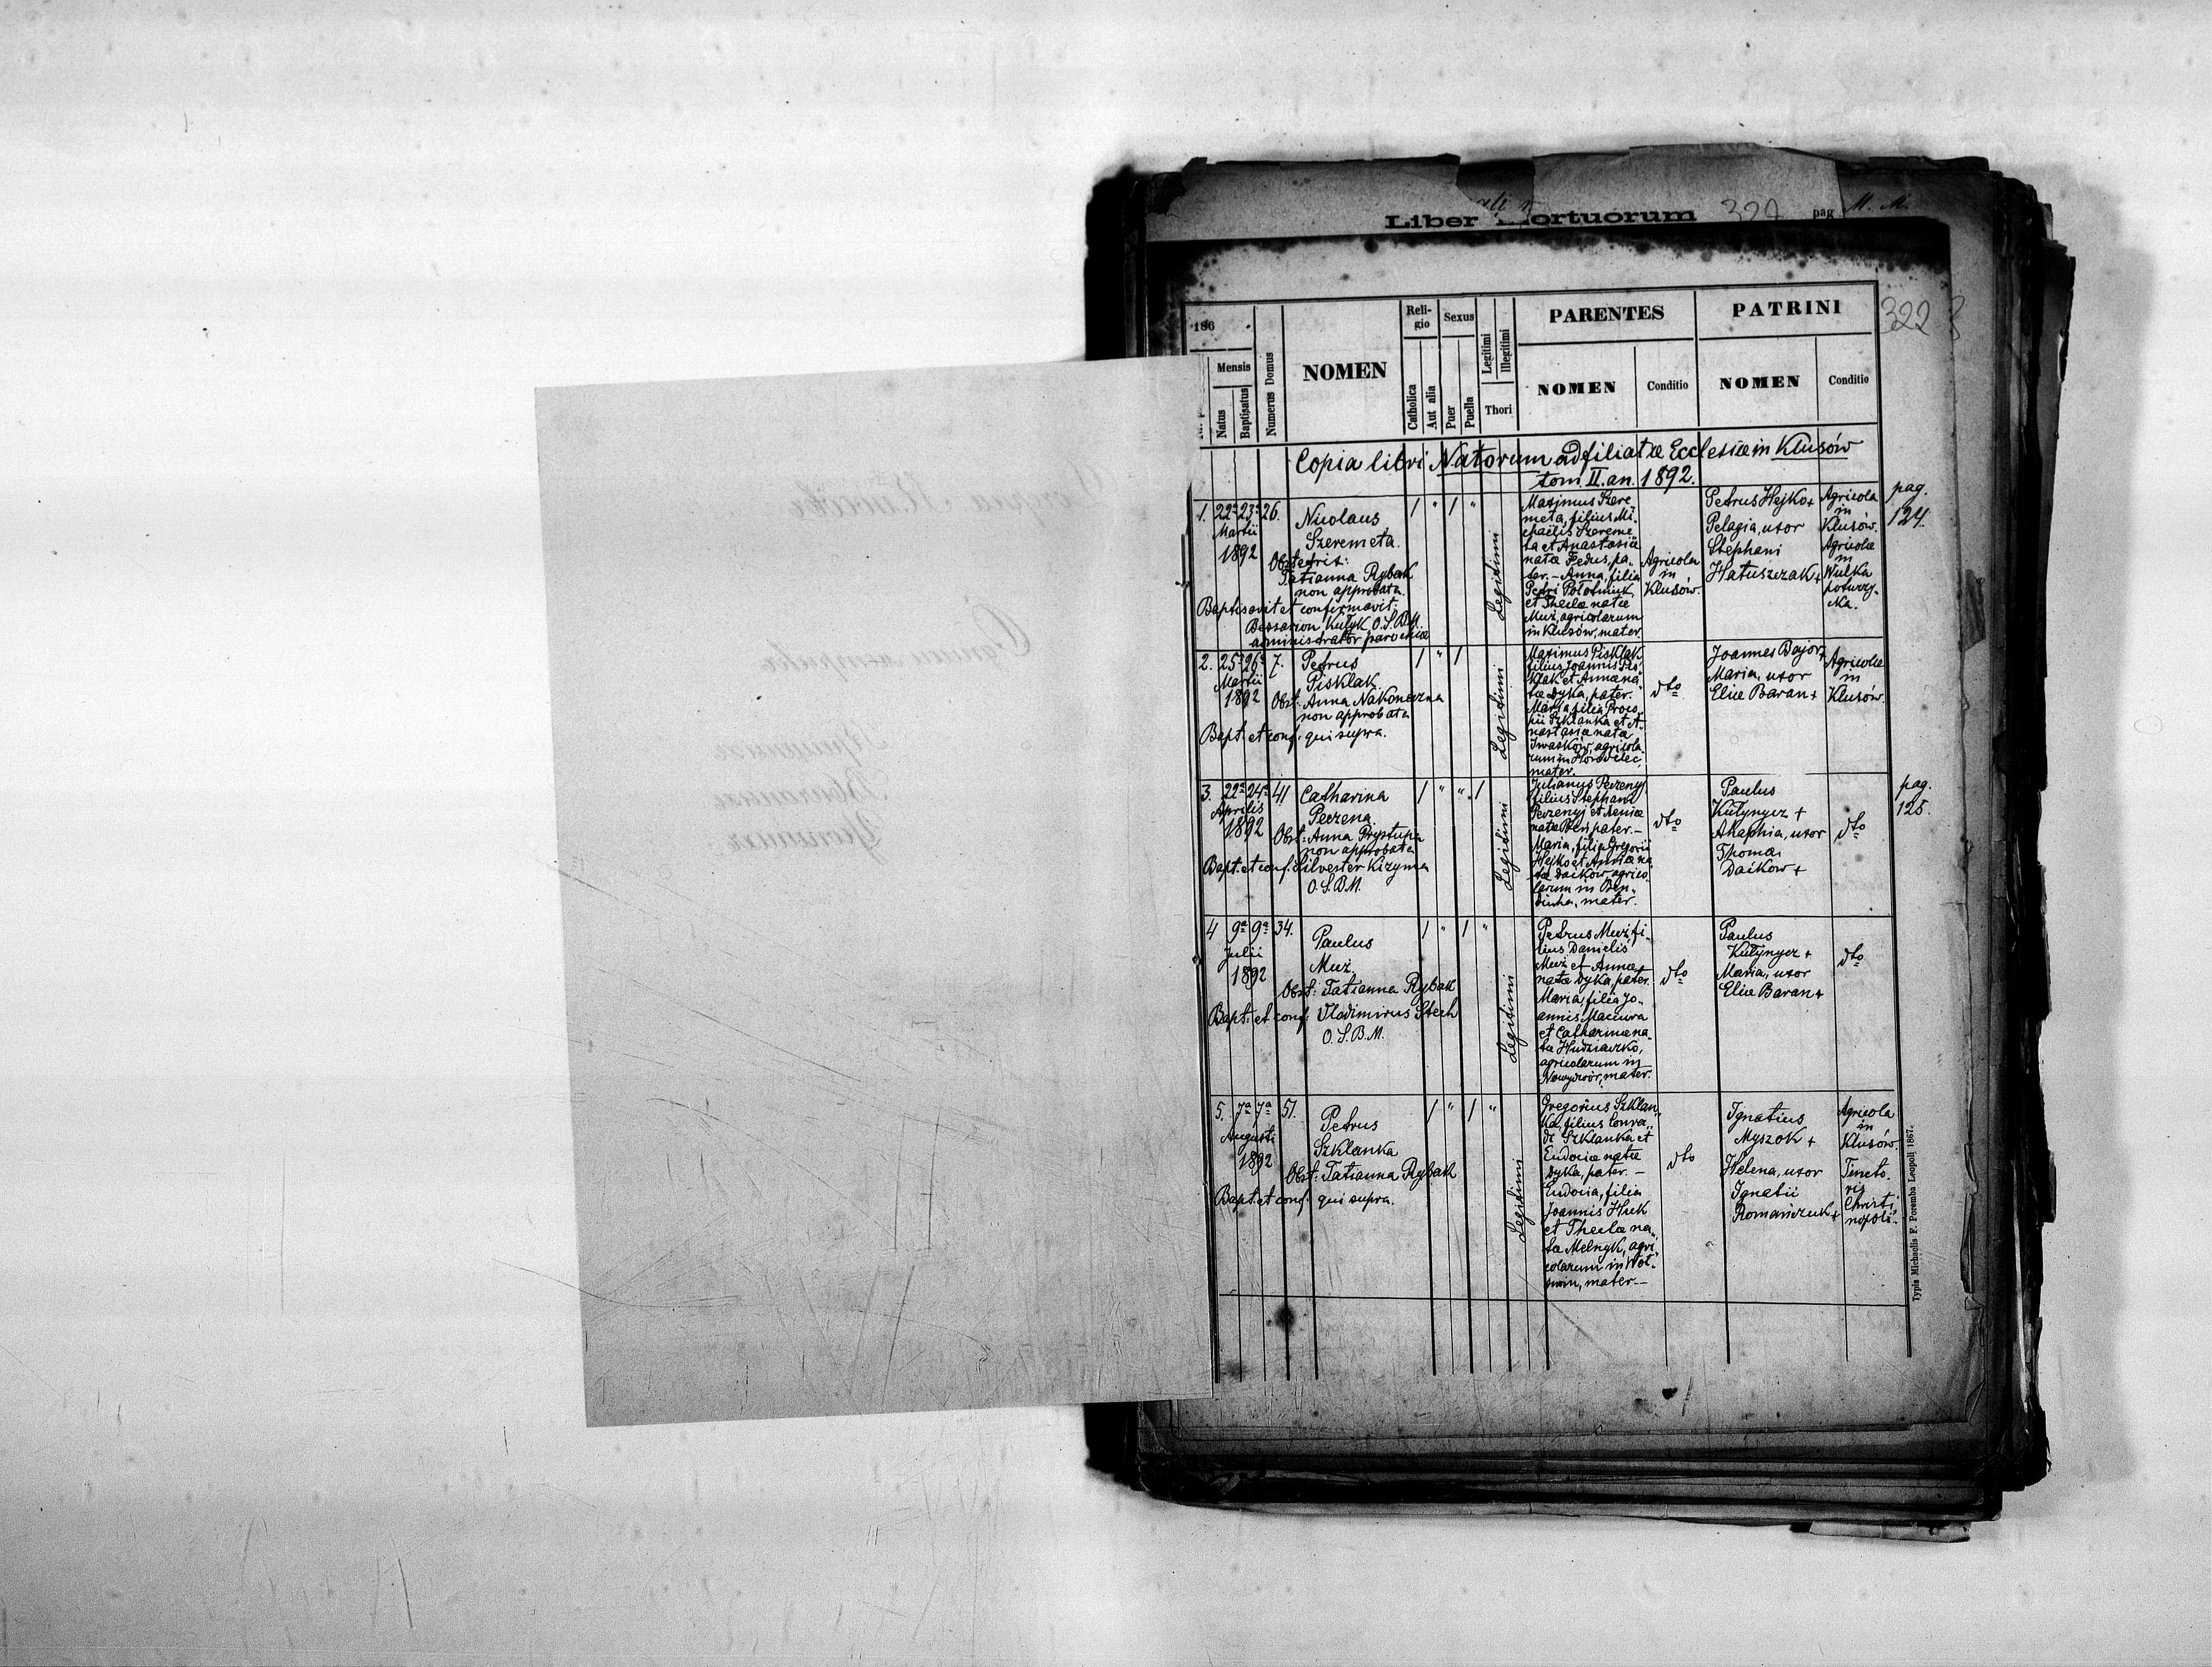 Liber Mortuorum 327 pag M. M.
322
186 .
Mensis
Natus
Baptisatus
Numerus Domus
NOMEN
Religio
Catholica
Aut alia
Sexus
Puer
Puella
Legitimi
Illegitimi
Thori
PARENTES
NOMEN
Conditio
PATRINI
NOMEN
Conditio
Copia libri Natorum adfiliatæ Ecclesiæ in Klusów
tom. II. an. 1892.
pag.
124.
1. 22a 23a 26.
Martii
1892
Nicolaus
Szeremeta.
Obstetrix:
Tatianna Rybak
non approbata.
Baptisavit et confirmavit:
Bessarion Kułyk O.S.B.M.
administrator parochiæ
1 " 1 "
Legitimi
Maximus Szere-
meta, filius Mi-
chaëlis Szereme-
ta et Anastasiæ
natæ Fedus, pa-
ter. - Anna, filia
Petri Połotniuk
et Theclæ natæ
Muż, agricolarum
in Klusów, mater.
Agricolæ
in
Klusów.
Petrus Hejko +
Pelagia, uxor
Stephani
Hatuszczak +
Agricola
in
Klusów.
Agricolæ
in
Wulka
poturzy-
cka.
2. 25a 26a 7.
Martii
1892
Petrus
Pisklak
Obst: Anna Nakoneczna
non approbata
Bapt. et conf: qui supra.
1 " 1
Legitimi
Maximus Pisklak
filius Joannis Pis-
klak et Annæ na-
tæ Dyka, pater.
Maria, filia Proco-
pii Szklanka et A-
nastasiæ nata
Iwasków, agricola-
rum in Horodłec,
mater.
dto
Joannes Bajor +
Maria, uxor
Eliæ Baran +
Agricolæ
in
Klusów.
3. 22a 24a 41
Aprilis
1892
Catharina
Peczena
Obst: Anna Prystupa
non approbata
Bapt. et conf: Silvester Kizyma
O.S.B.M.
1 " " 1
Legitimi
Julianus Peczenyj
filius Stephani
Peczenyj et Xeniæ
natæ Deń pater. -
Maria, filia Gregorii
Hejko et Annæ na-
tæ Daików agrico-
larum in Ben-
diuha, mater.
dto
Paulus
Kułynycz +
Ahaphia, uxor
Thomæ
Daików +
dto
pag.
125.
4 9a 9a 34.
Julii
1892
Paulus
Muż.
Obst: Tatianna Rybak
Bapt. et conf: Vladimirus Stech
O.S.B.M.
1 " 1 "
Legitimi
Petrus Muż, fi-
lius Danielis
Muż et Annæ
natæ Dyka, pater.
Maria, filia Jo-
annis Maciura
et Catharinæ na-
tæ Hudziaczko,
agricolarum in
Nowydwór, mater.
dto
Paulus
Kułynycz +
Maria, uxor
Eliæ Baran +
dto
5. 7a 7a 51.
Augusti
1892
Petrus
Szklanka
Obst: Tatianna Rybak
Bapt. et conf: qui supra.
1 " 1 "
Legitimi
Gregorius Szklan-
ka, filius Conra-
di Szklanka et
Eudociæ natæ
Dyka, pater. -
Eudocia, filia
Joannis Huk
et Theclæ na-
tæ Melnyk, agri-
colarum in Woł-
swin, mater. -
dto
Ignatius
Myszok +
Helena, uxor
Ignatii
Romańczuk +
Agricola
in
Klusów.
Tincto-
ris
Christi-
nopoli.
Typis Michaelis F. Poremba Leopoli 1867.